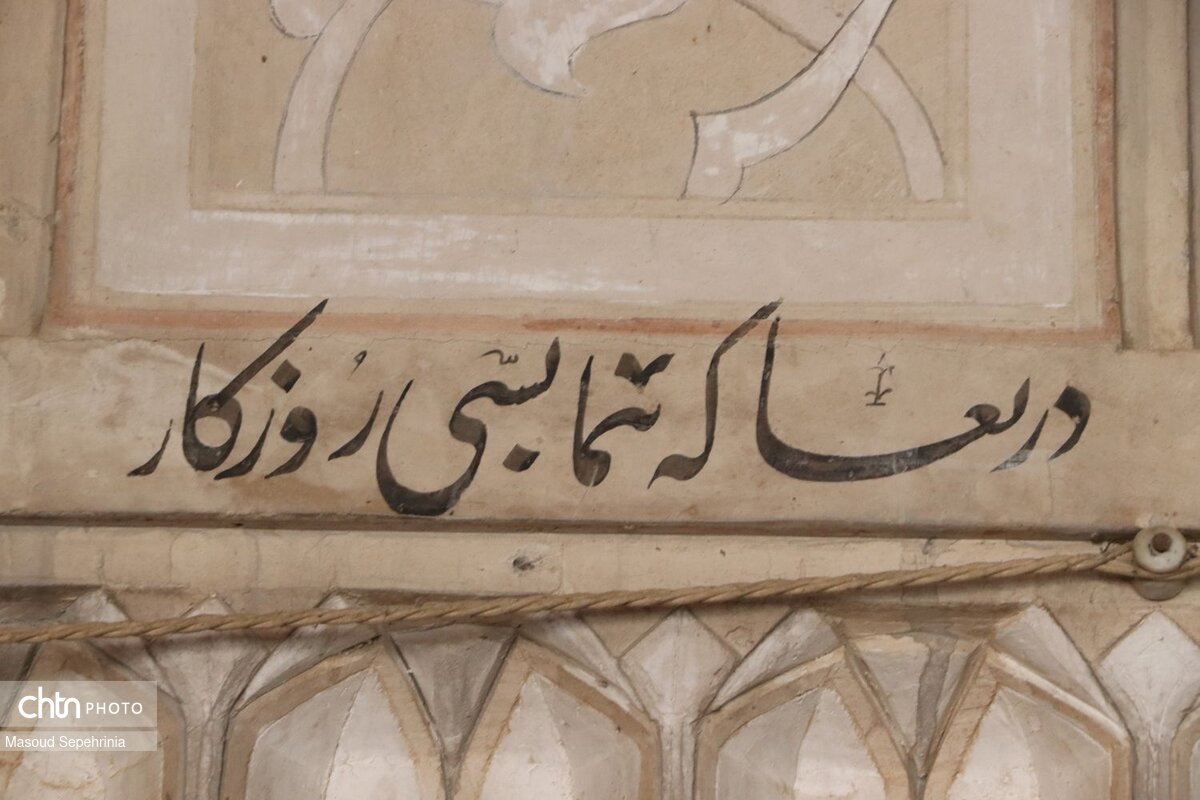 دریغا که بیما بسّی رُوزگار
chtn PHOTO
Masoud Sepehrinia